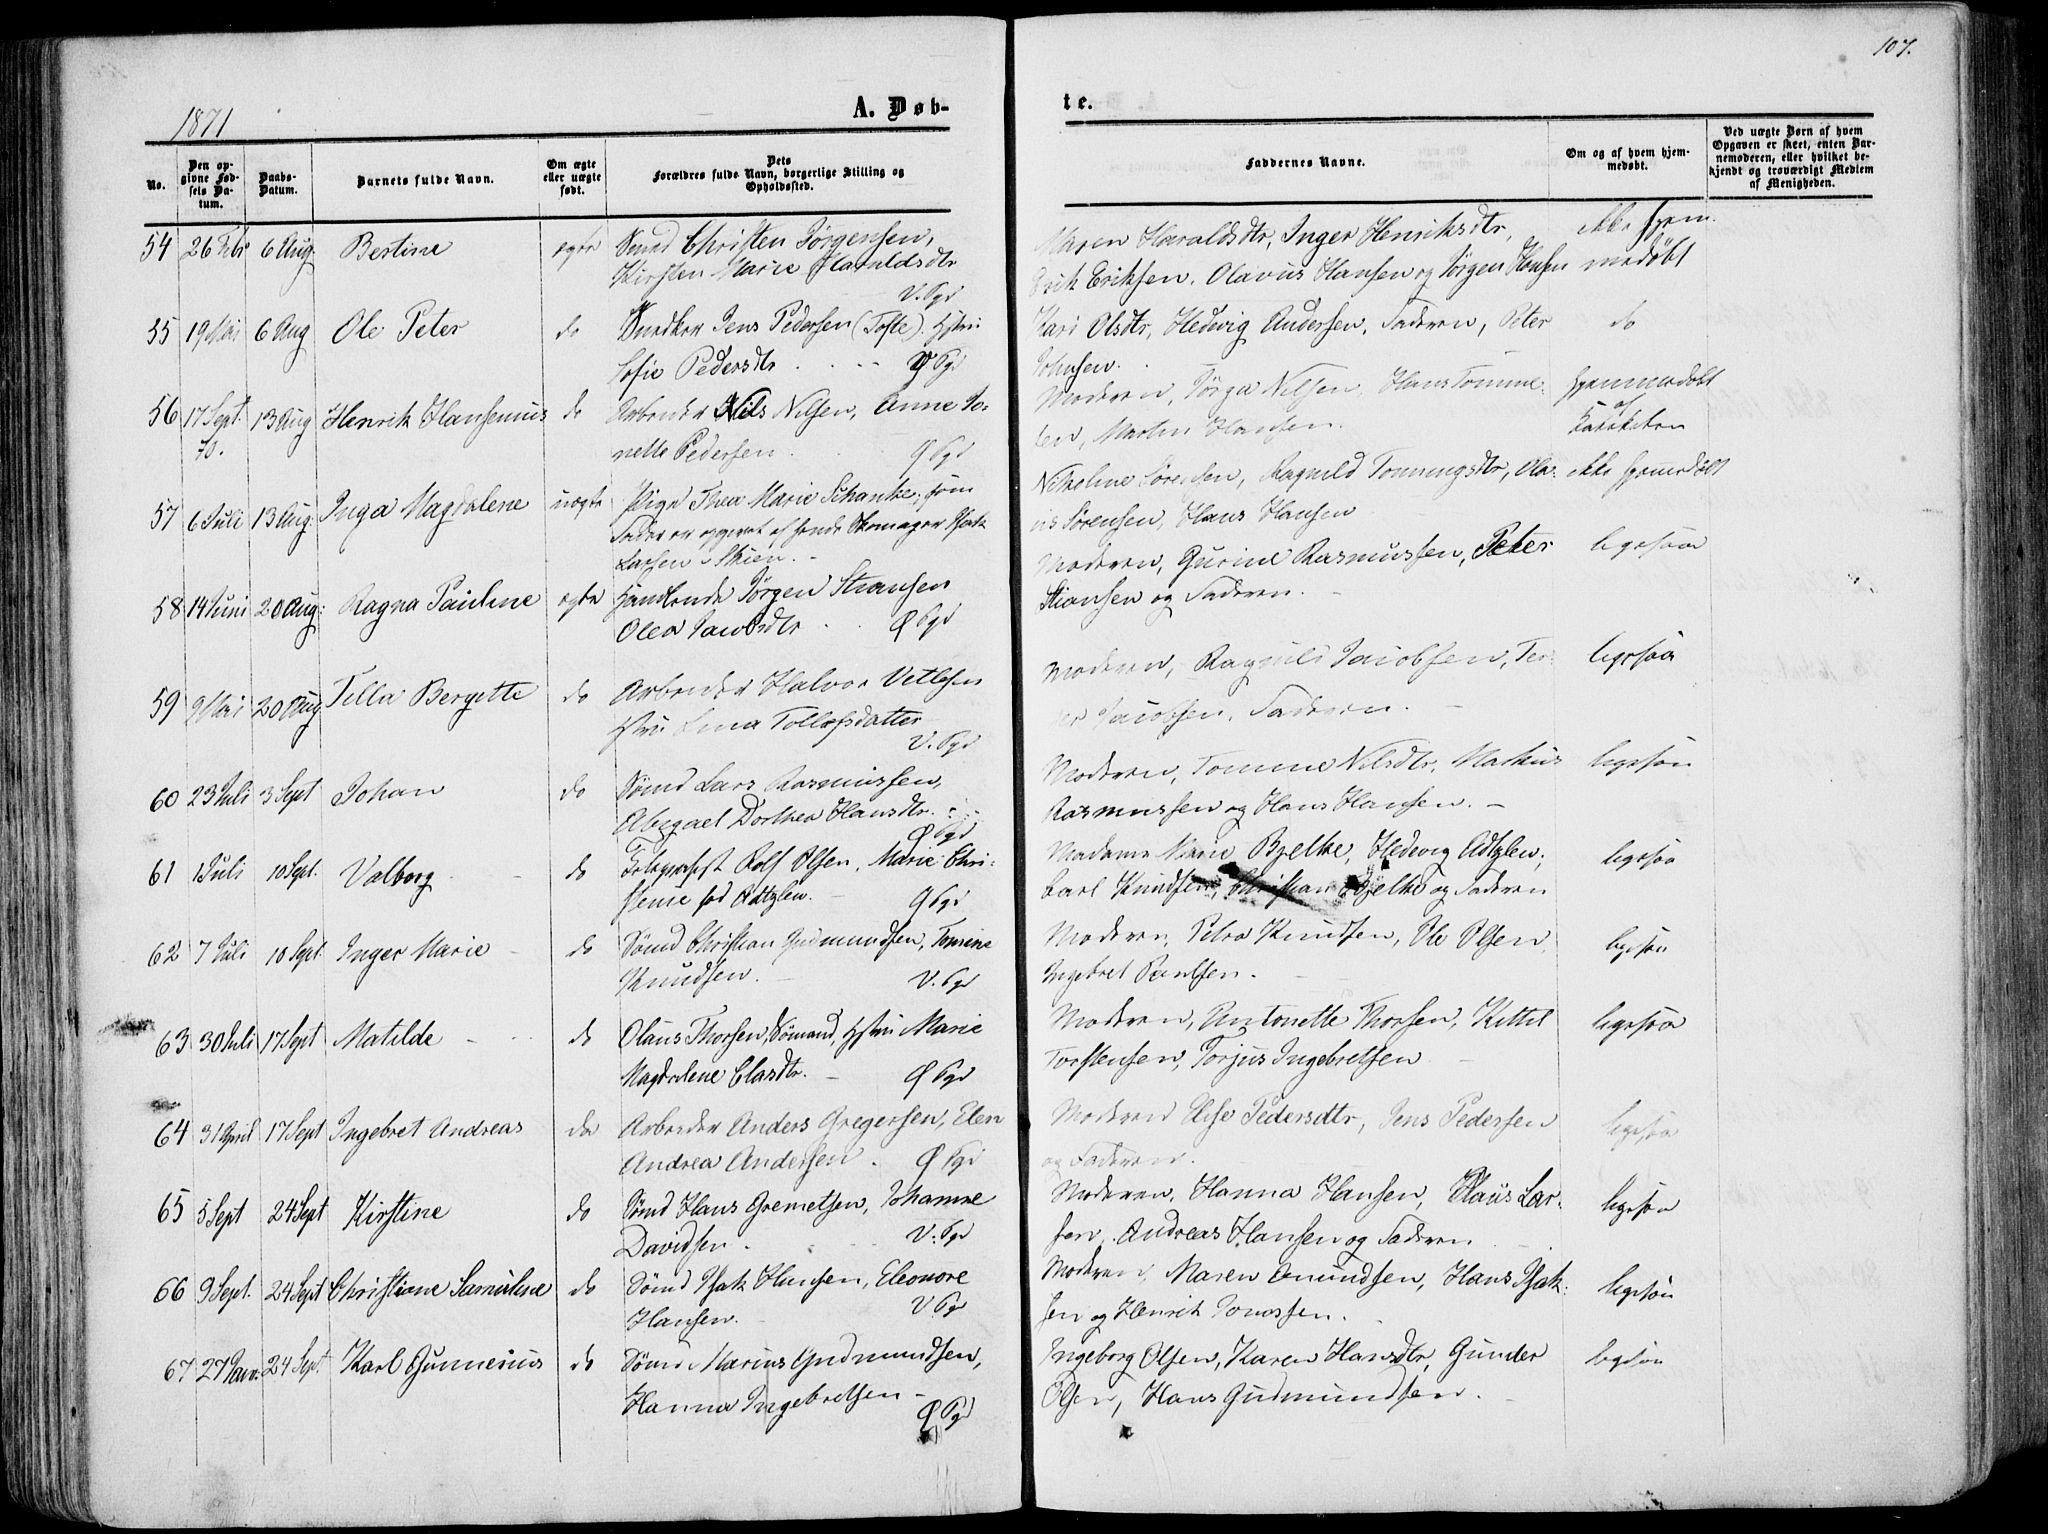 107.
1871
A. Døb-
te.
No.
Den op-
givne Fød-
sels Da-
tum.
Daabs-
Datum.
Barnets fulde Navn.
Om ægte
eller uægte
født.
Dets
Forældres fulde Navn, borgerlige Stilling og
Opholdssted.
Faddernes Navne.
Om og af hvem hjem-
medøbt.
Ved uægte Børn af hvem
Opgaven er skeet, enten Bar-
nemoderen, eller hvilket be-
kjendt og troværdigt Medlem
af Menigheden.
54 26 Febr 6 Aug. Bertine ægte Sømd Christen Jørgensen, Maren Haraldsdtr, Inger Henriksdtr, ikke hjem-
Kirsten Marie Haraldsdtr Erik Eriksen, Olavus Hansen og Jørgen Hansen medøbt
V. Pgd
55 19 Mai 6 Aug Ole Peter do Snedker Jens Pedersen (Tofte). Hstru Kari Olsdtr, Hedevig Andersen, Faderen, Peter do
Sofie Pedersdtr Ø Pgd Johnsen.
56 17 Sept. 13 Aug Henrik Hansemius do Arbeider Nils Nilsen, Anne Jo- Moderen, Jørga Nilsen, Hans Tomme- hjemmedøbt
70. nette Pedersen. Ø Pgd sen, Martin Hansen. af
57 6 Juli 13 Aug. Inga Magdalene uægte Pige Thea Marie Schanke; som Nikoline Sørensen, Ragnild Tonningsdtr, Ola- ikke hjemmedøbt
Fader er opgivet af hende Skomager Isak us Sørensen, Hans Hansen
Larsen Skien.
58 14 Juni 20 Aug: Ragna Pauline ægte Handlende Jørgen Stiansen Moderen, Gurine Rasmussen, Peter ligesaa
Olea Jacobsdtr Ø Pgd Stiansen og Faderen.
59 9 Mai 20 Aug Tella Bergette do Arbeider Halvor Vetlesen Moderen, Ragnild Jacobsen, Ter- ligesaa
Hstru Lina Tollefsdatter Jacobsen, Faderen.
V. Pgd
60 23 Juli 3 Sept Johan do Sømd Lars Rasmussen, Moderen, Tomine Nilsdtr, Mathias ligesaa
Abigael Dorthea Hansdtr. Rasmussen og Hans Hansen.
Ø Pgd
61 1 Juli 10 Sept. Valborg do Telegrafist Rolf Olsen, Marie Chri- Madame Marie Bjelke, Hedevig Adtzlew, ligesaa
stense fød Adtzlew. Ø Pgd Carl Knudsen, Christian Bjelke og Faderen
62 7 Juli 10 Sept. Inger Marie do Sømd Christian Gudmundsen, Tomine Moderen, Petra Knudsen, Ole Olsen, ligesaa
Knudsen. V. Pgd Ingebret Paulsen.
63 30 Juli 17 Sept Matilde do Olaus Thorsen, Sømand, Hstru Marie Moderen, Antonette Thorsen, Kittil ligesaa
Magdalene Clasdtr. Ø Pgd Torstensen, Torjus Ingebretsen
64 31 April 17 Sept Ingebret Andreas do Arbeider Anders Gregersen, Elen Moderen Else Pedersdtr, Jens Pedersen ligesaa
Andrea Andersen. Ø Pgd og Faderen.
65 5 Sept 24 Sept Kirstine do Sømd Hans Gremetsen, Johanne Moderen, Hanna Hansen, Claus Lar- ligesaa
Davidsen. V. Pgd sen, Andreas Hansen og Faderen
66 9 Sept. 24 Sept Christiane Samuline do Sømd Isak Hansen, Eleonore Moderen, Maren Amundsen, Hans Isak- ligesaa
Hansen. V Pgd sen og Henrik Jonassen.
67 27 Janv. 24 Sept. Karl Gunnerius do Sømd Marius Gudmundsen, Ingeborg Olsen, Karen Hansdtr, Gunder ligesaa
Hanna Ingebretsen Ø Pgd Olsen, Hans Gudmundsen.